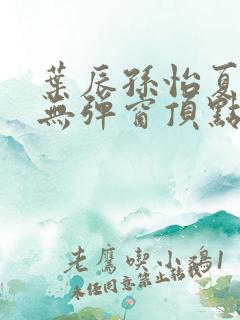 葉辰孫怡夏
無彈窗頂點
老鷹喫小鷄1
未任同意禁止轉載